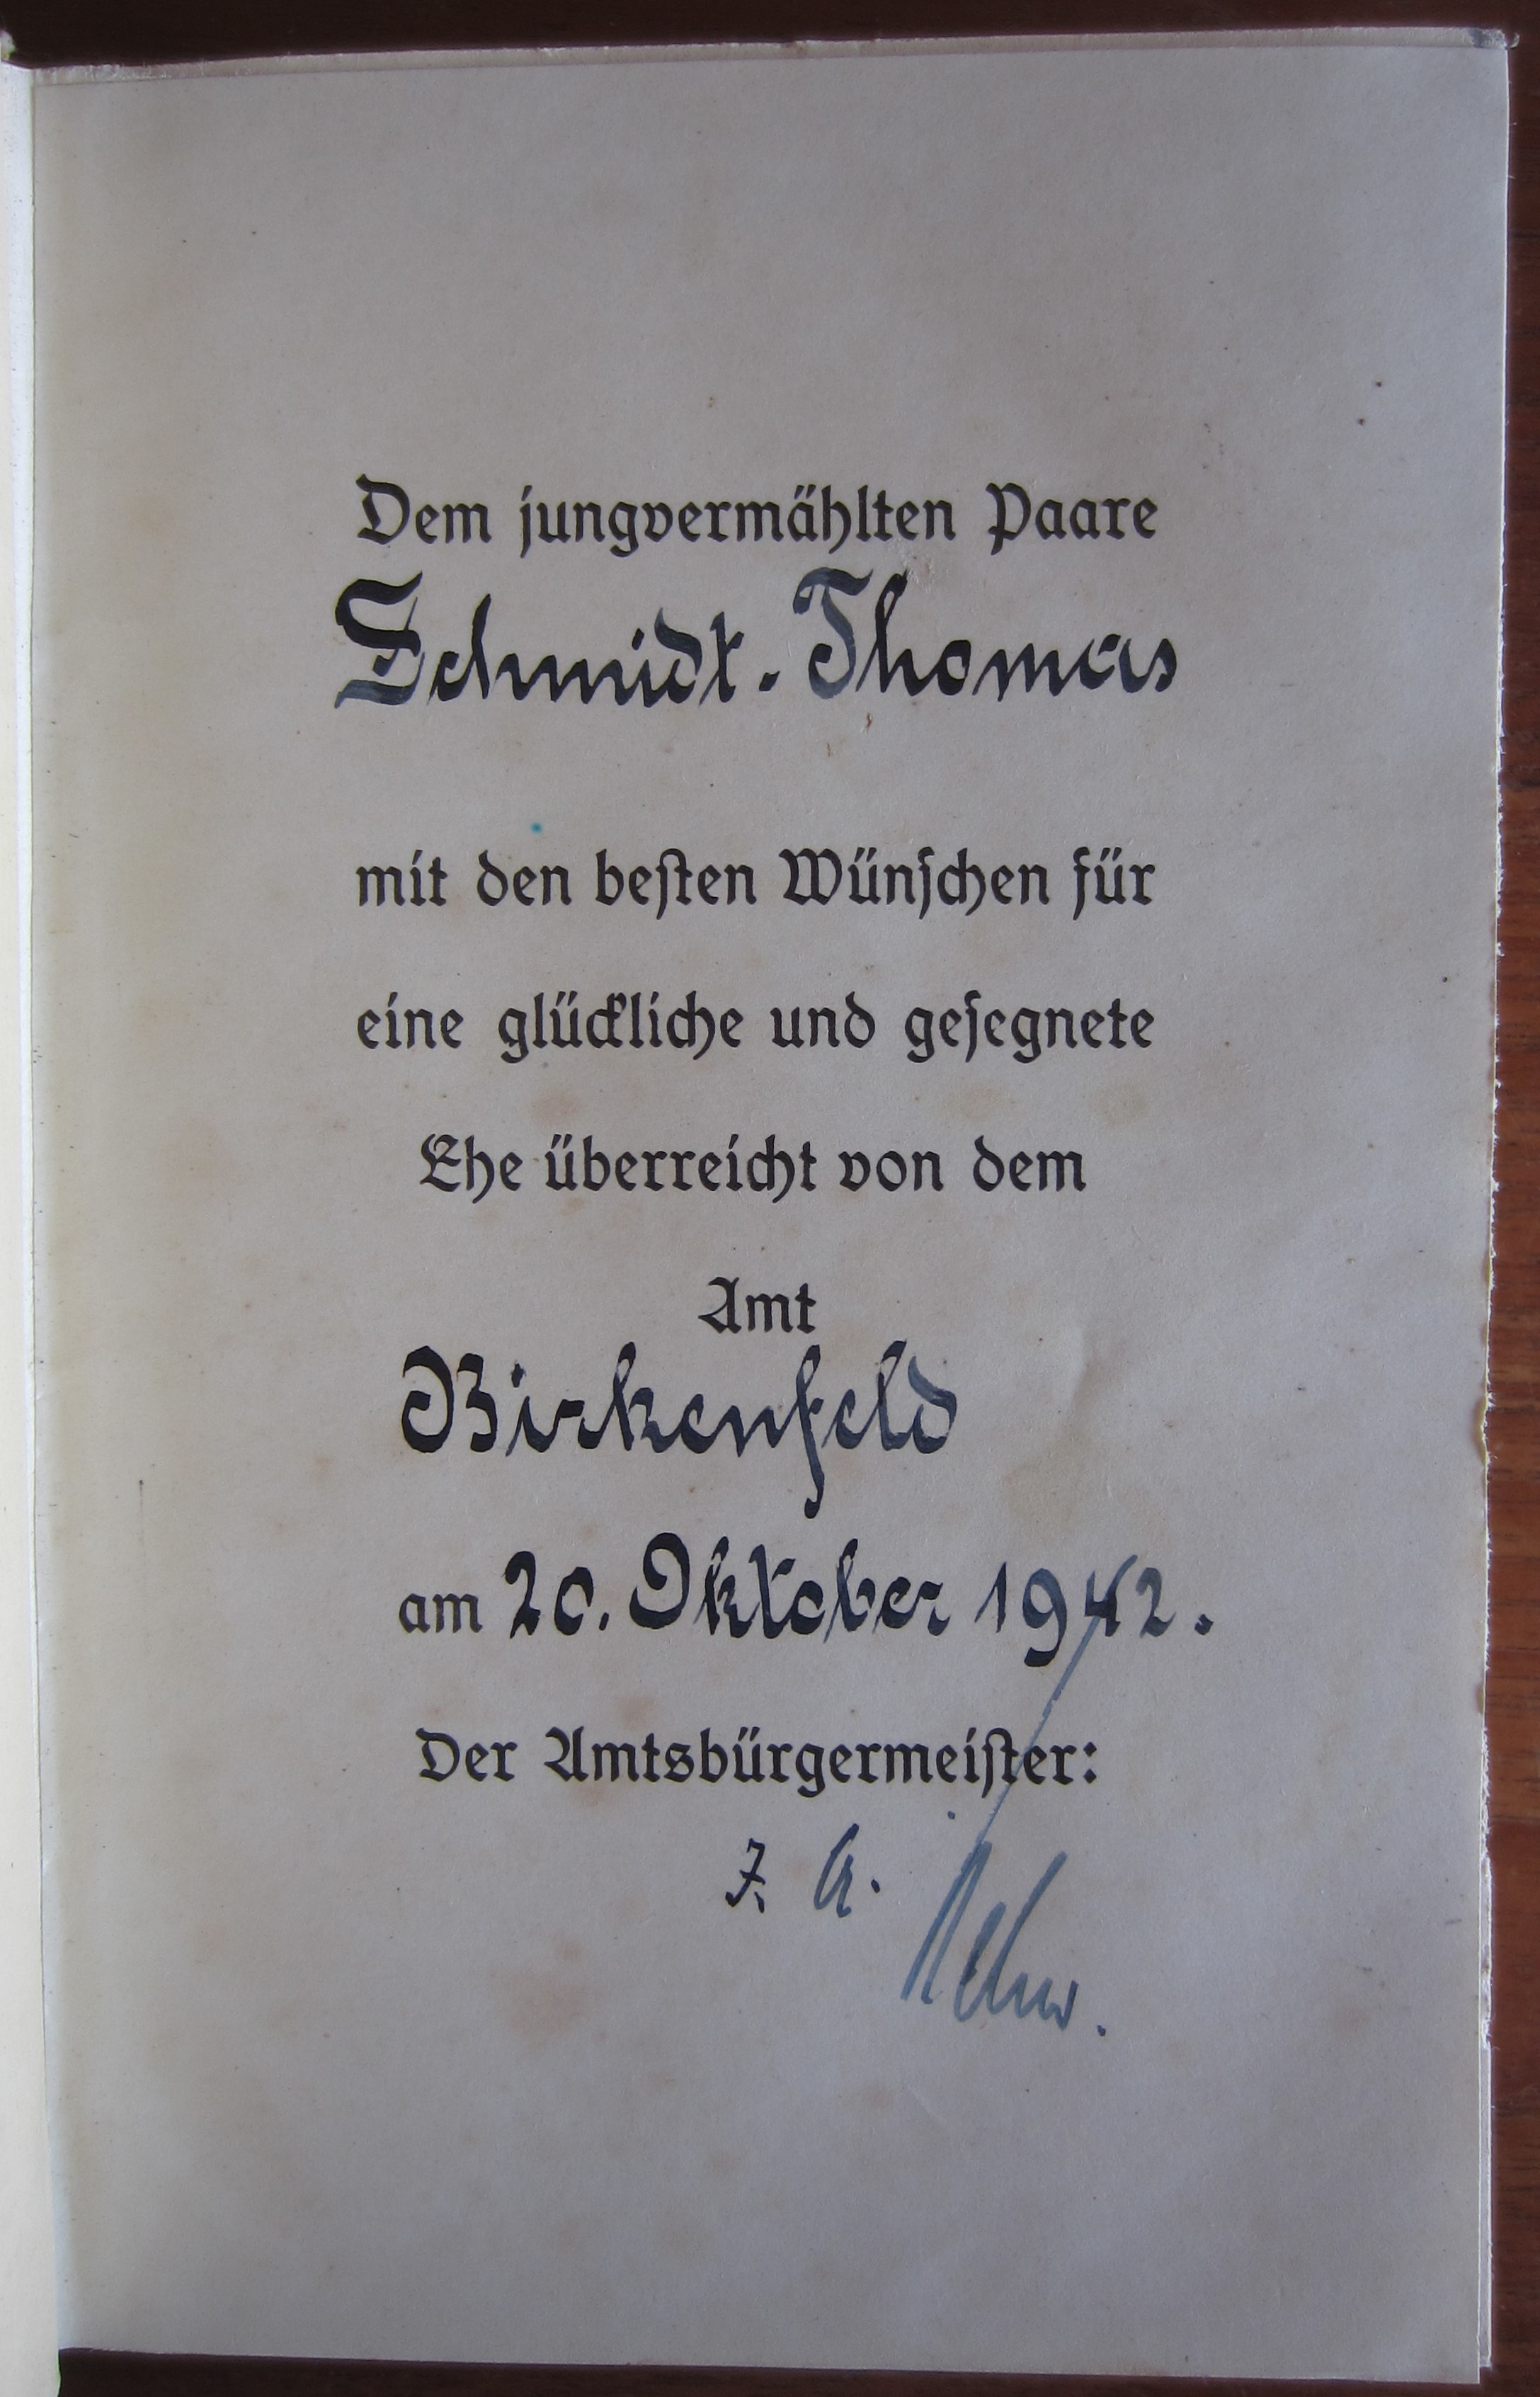 Dem jungvermählten Paare
Schmidt-Thomas
mit den besten Wünschen für
eine glückliche und gesegnete
Ehe überreicht von dem
Amt
Birkenfeld
am 20. Oktober 1942.
Der Amtsbürgermeister:
J. A.